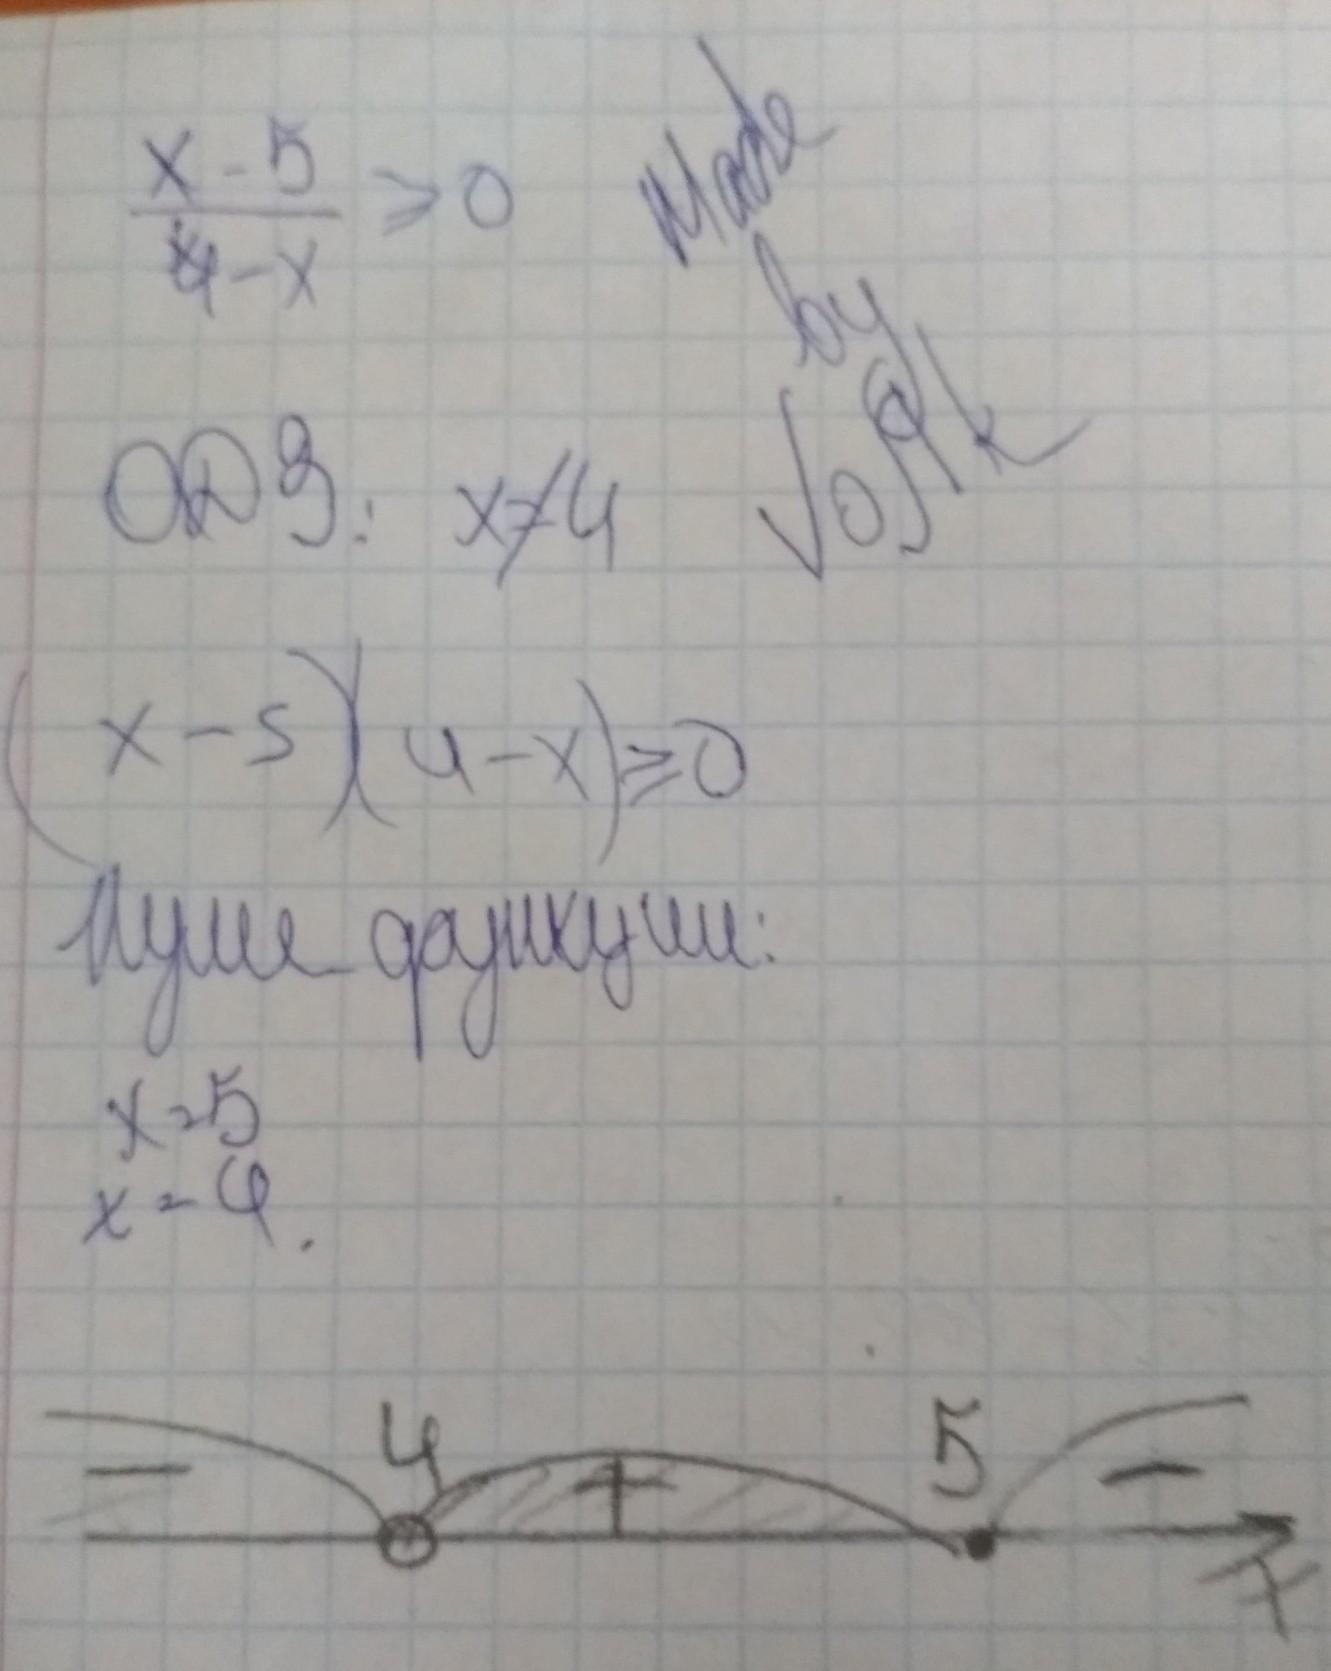 x - 5
4 - x
≥ 0
Made
by
ОДЗ: x ≠ 4
(x - 5)(4 - x) ≥ 0
Нули функции:
x = 5
x = 4.
4
5
−
+
−
x